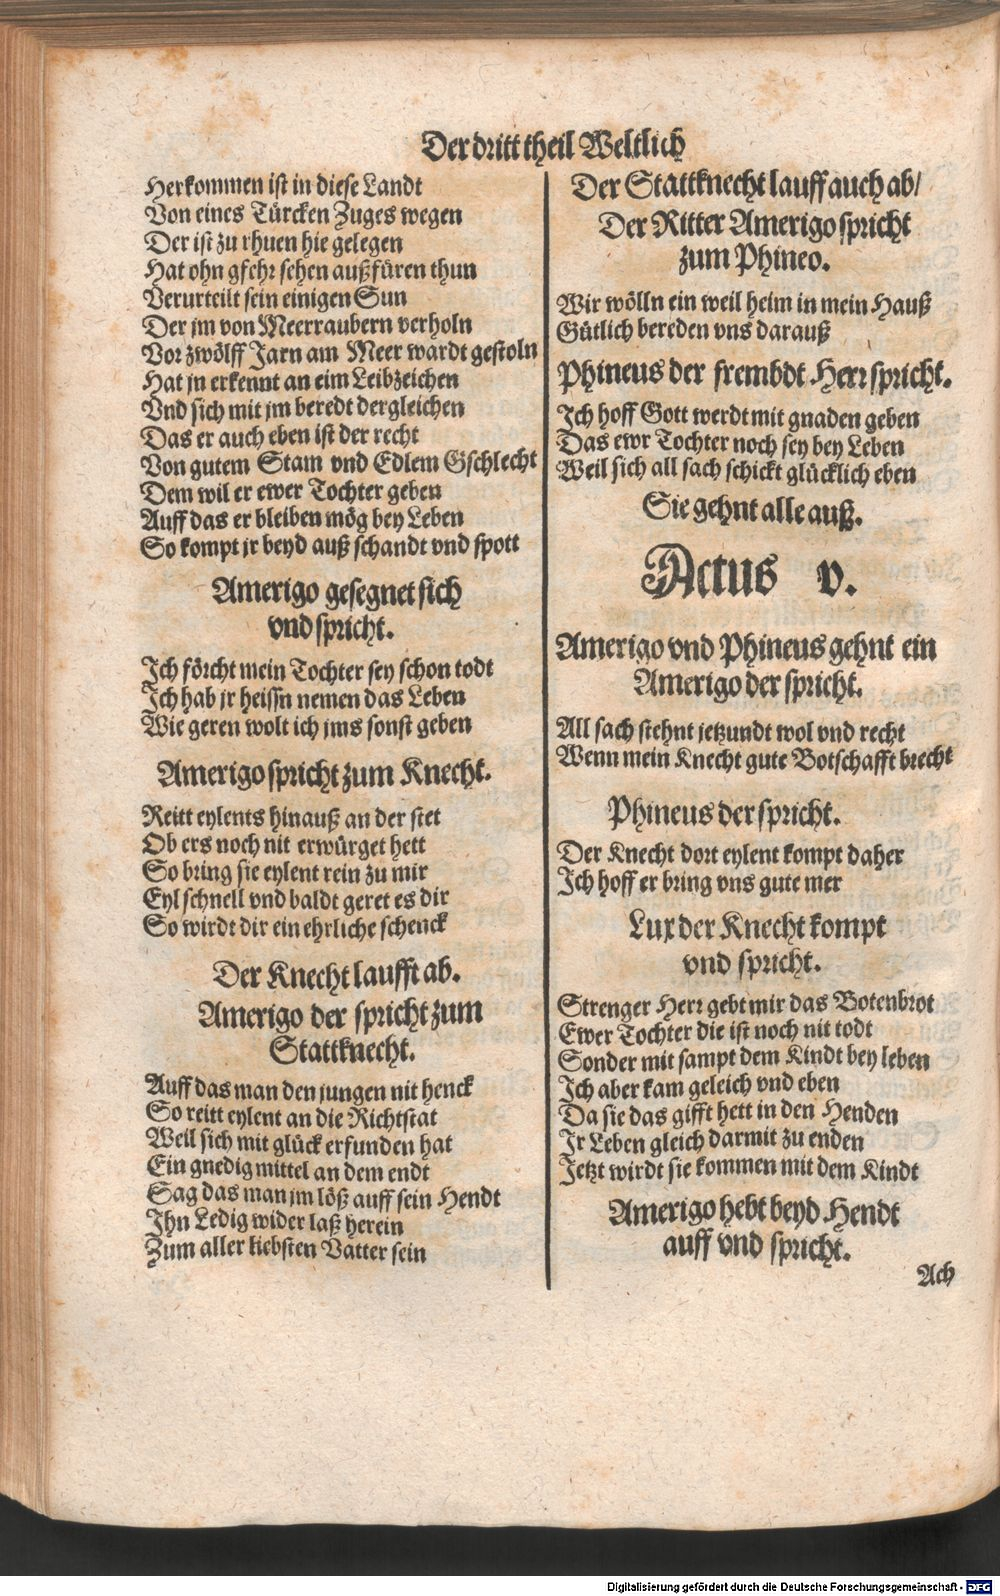 Der dritt theil Weltlich
Herkommen ist in diese Landt
Von eines Türcken Zuges wegen
Der ist zu rhuen hie gelegen
Hat ohn gfehr sehen außfüren thun
Verurteilt sein einigen Sun
Der jm von Meerraubern verholn
Vor zwölff Jarn am Meer wardt gestoln
Hat jn erkennt an eim Leibzeichen
Vnd sich mit jm beredt dergleichen
Das er auch eben ist der recht
Von gutem Stam vnd Edlem Gschlecht
Dem wil er ewer Tochter geben
Auff das er bleiben mög bey Leben
So kompt jr beyd auß schandt vnd spott
Amerigo gesegnet sich
vnd spricht.
Ich förcht mein Tochter sey schon todt
Ich hab jr heissn nemen das Leben
Wie geren wolt ich jms sonst geben
Amerigo spricht zum Knecht.
Reitt eylents hinauß an der stet
Ob ers noch nit erwürget hett
So bring sie eylent rein zu mir
Eyl schnell vnd baldt geret es dir
So wirdt dir ein ehrliche schenck
Der Knecht laufft ab.
Amerigo der spricht zum
Stattknecht.
Auff das man den jungen nit henck
So reitt eylent an die Richtstat
Weil sich mit glück erfunden hat
Ein gnedig mittel an dem endt
Sag das man jm löß auff sein Hendt
Ihn Ledig wider laß herein
Zum aller liebsten Vatter sein
Der Stattknecht lauff auch ab/
Der Ritter Amerigo spricht
zum Phineo.
Wir wölln ein weil heim in mein Hauß
Gütlich bereden vns darauß
Phineus der frembdt Herr spricht.
Ich hoff Gott werdt mit gnaden geben
Das ewr Tochter noch sey bey Leben
Weil sich all sach schickt glücklich eben
Sie gehnt alle auß.
Actus v.
Amerigo vnd Phineus gehnt ein
Amerigo der spricht.
All sach stehnt jetzundt wol vnd recht
Wenn mein Knecht gute Botschafft brecht
Phineus der spricht.
Der Knecht dort eylent kompt daher
Ich hoff er bring vns gute mer
Lux der Knecht kompt
vnd spricht.
Strenger Herr gebt mir das Botenbrot
Ewer Tochter die ist noch nit todt
Sonder mit sampt dem Kindt bey leben
Ich aber kam geleich vnd eben
Da sie das gifft hett in den Henden
Ir Leben gleich darmit zu enden
Jetzt wirdt sie kommen mit dem Kindt
Amerigo hebt beyd Hendt
auff vnd spricht.
Ach
Digitalisierung gefördert durch die Deutsche Forschungsgemeinschaft - DFG